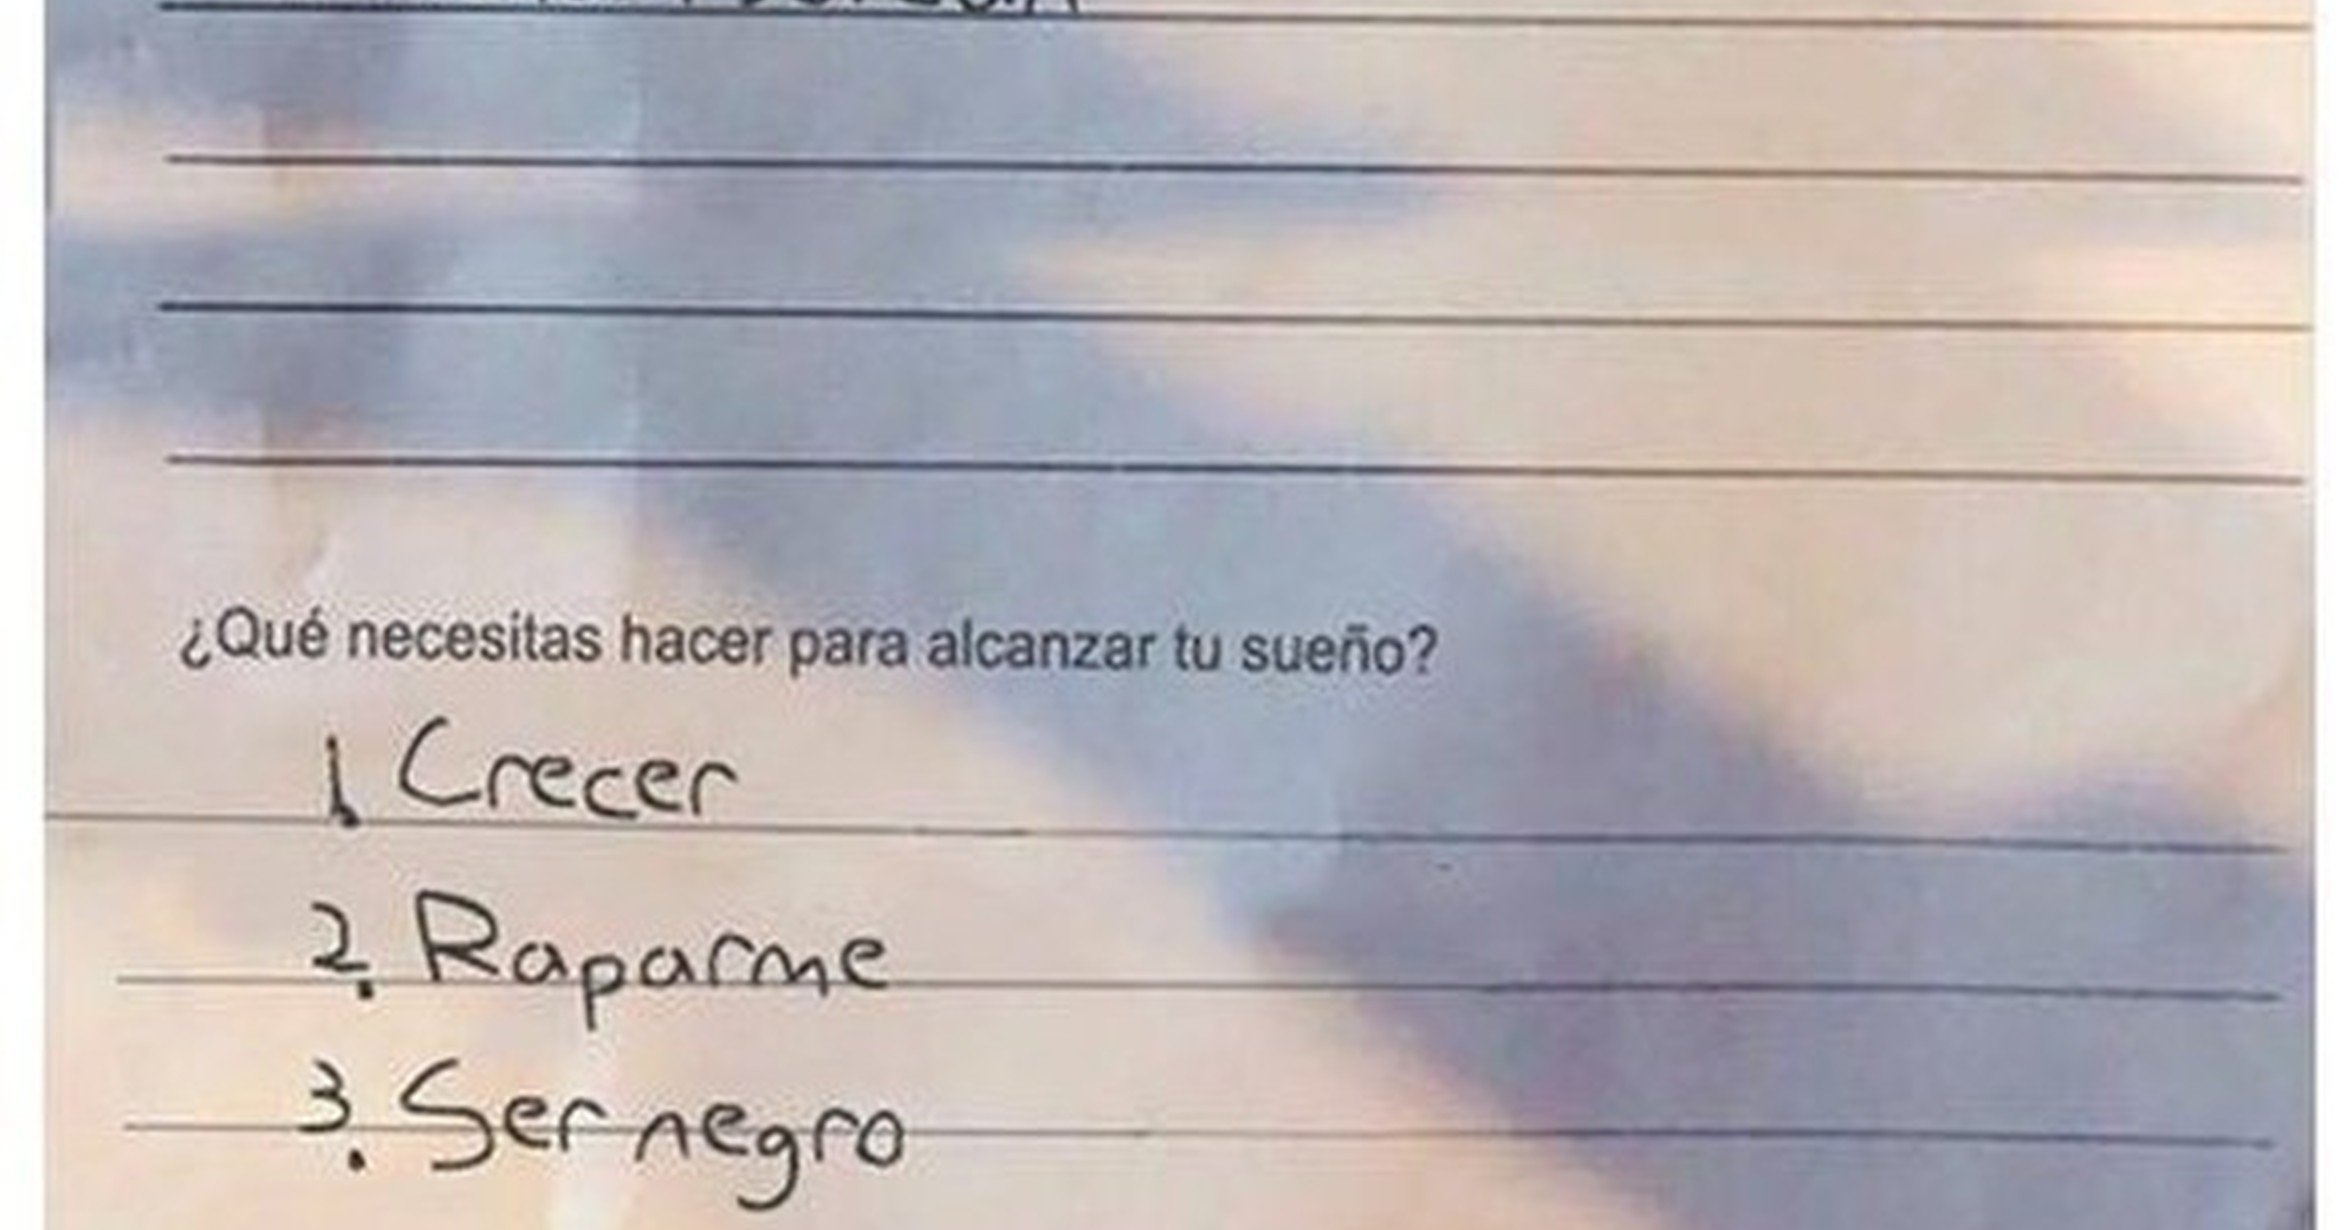 ¿Qué necesitas hacer para alcanzar tu sueño?
1. Crecer
2. Raparme
3. Ser negro